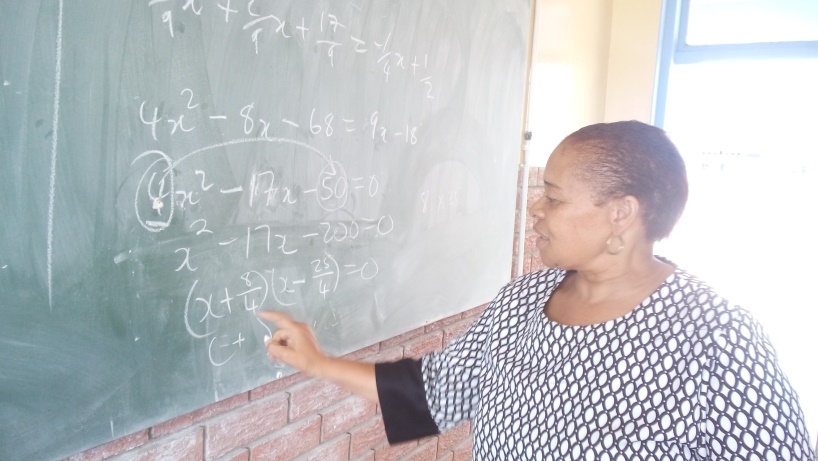 x + x + 17/9 = x + 1/2
4x² - 8x - 68 = 9x - 18
4x² - 17x - 50 = 0
x² - 17x - 200 = 0
(x + 8/4)(x - 25/4) = 0
(x +